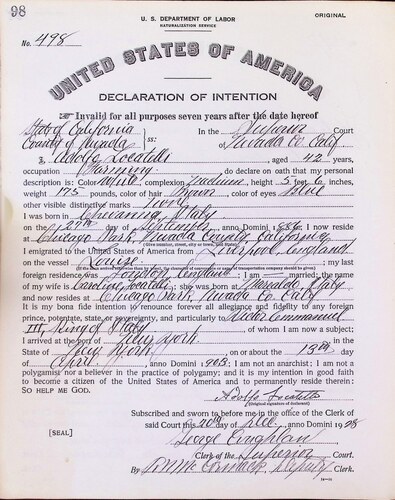 98
U. S. DEPARTMENT OF LABOR
NATURALIZATION SERVICE
ORIGINAL
No. 498
UNITED STATES OF AMERICA
DECLARATION OF INTENTION
Invalid for all purposes seven years after the date hereof
State of California
County of Nevada ss: In the Superior Court
of Nevada Co. Calif.
I, Adolfo Locatelli, aged 42 years,
occupation Farming, do declare on oath that my personal
description is: Color White, complexion Medium, height 5 feet 6 inches,
weight 175 pounds, color of hair Brown, color of eyes Blue
other visible distinctive marks None
I was born in Italy
on the 27th day of September, anno Domini 1886; I now reside
at Chicago Park, Nevada County, California
(Give number, street, city or town, and State)
I emigrated to the United States of America from Liverpool, England
on the vessel; my last
(If the alien arrived otherwise than by vessel, the character of conveyance or name of transportation company should be given)
foreign residence was England; I am married; the name
of my wife is Caroline Locatelli; she was born at Italy
and now resides at Chicago Park, Nevada Co. Calif
It is my bona fide intention to renounce forever all allegiance and fidelity to any foreign
prince, potentate, state, or sovereignty, and particularly to Victor Emmanuel
III, King of Italy, of whom I am now a subject;
I arrived at the port of New York, in the
State of New York, on or about the 13th day
of April, anno Domini; I am not an anarchist; I am not a
polygamist nor a believer in the practice of polygamy; and it is my intention in good faith
to become a citizen of the United States of America and to permanently reside therein:
SO HELP ME GOD.
Adolfo Locatelli
(Original signature of declarant)
Subscribed and sworn to before me in the office of the Clerk of
said Court this 20th day of Dec., anno Domini 1928
[SEAL]
George Coughlan
Clerk of the Superior Court.
By R. N. McCormack, Deputy Clerk.